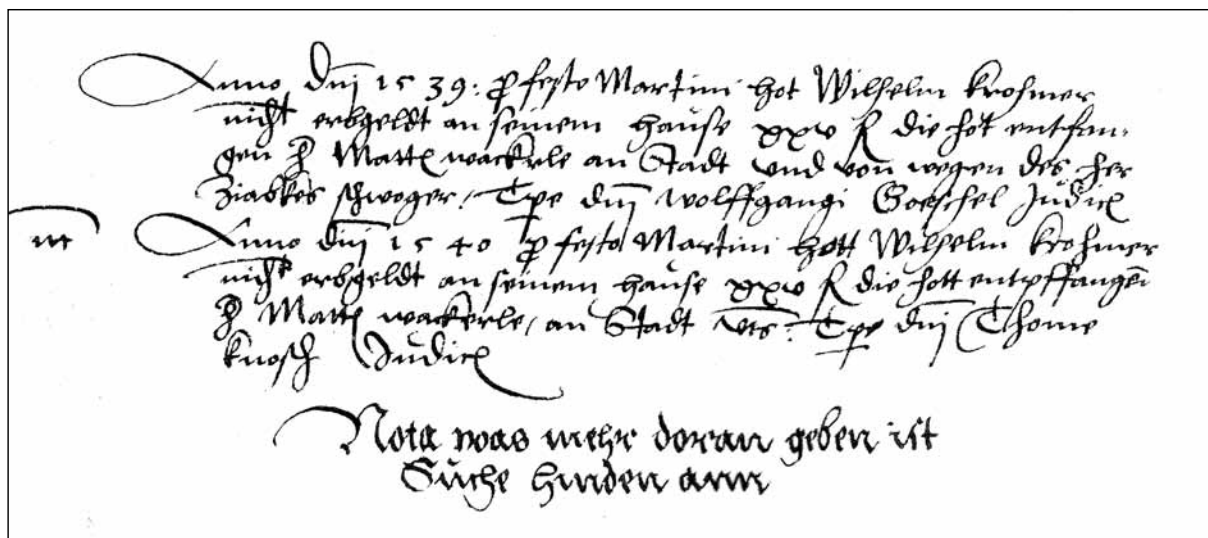 Anno dnj 1539: p festo Martini hot Wilhelm Krohmer
nicht erbgeldt an seinem hause xxv fl die hot entfan-
gen h Matt wackerle an Stadt und von wegen des her
Ziabkes schwoger, Tpe dnj wolffgangi Goeschel Judic
Anno dnj 1540 p festo Martini hott Wilhelm Krohmer
nicht erbgeldt an seinem hause xxv fl die hott entpffangen
h Matt wackerle, an Stadt vts. Tpe dnj Thome
knosch Judic
Nota was mehr doran geben ist
Suche hinden ann